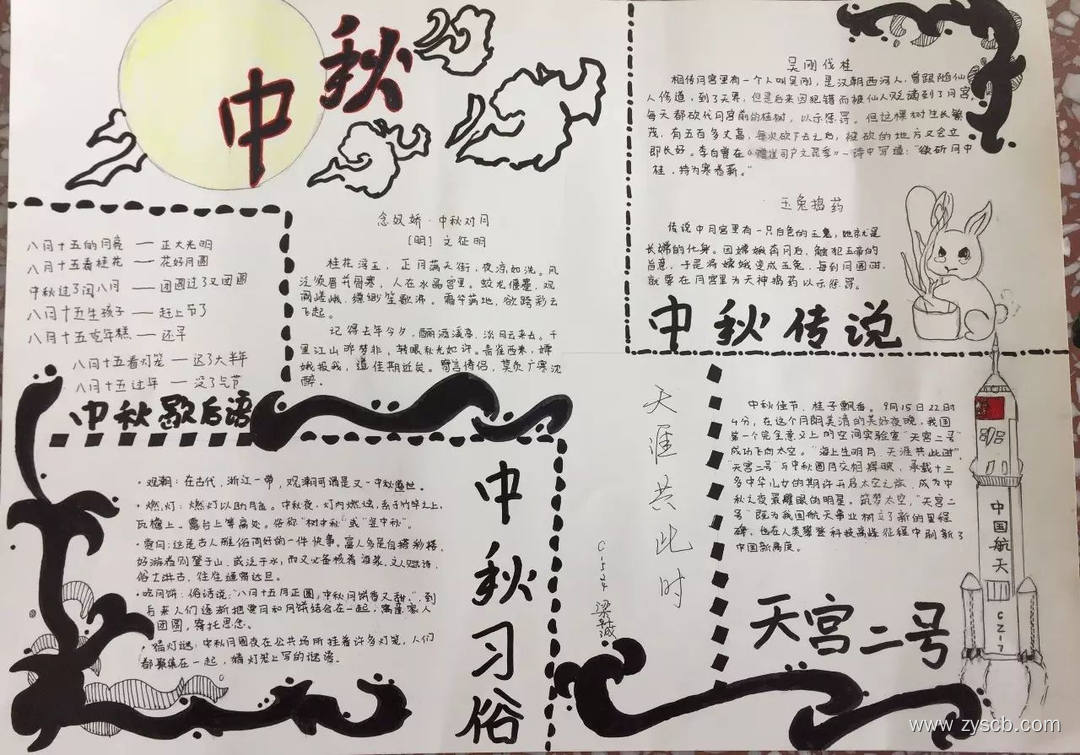 中秋
八月十五的月亮 — 正大光明
八月十五看桂花 — 花好月圆
中秋过了闰八月 — 团圆过了又团圆
八月十五生孩子 — 赶上节了
八月十五吃年糕 — 还早
八月十五看灯笼 — 迟了大半年
八月十五过年 — 差了节气
中秋歇后语
念奴娇·中秋对月
[明] 文征明
桂花浮玉，正月满天街，夜凉如洗。风
泛须眉并骨寒，人在水晶宫里。蛟龙偃蹇，观
阙嵯峨，缥缈笙歌沸。霜华满地，欲跨彩云
飞起。
记得去年今夕，酾酒溪亭，淡月云来去。千
里江山昨梦非，转眼秋光如许。青雀西来，嫦
娥报我，道佳期近矣。寄言俦侣，莫负广寒沈
醉。
吴刚伐桂
相传月宫里有一个人叫吴刚，是汉朝西河人，曾跟随仙
人修道，到了天界，但是后来因犯错而被仙人贬谪到了月宫，
每天都砍伐月宫前的桂树，以示惩罚。但这棵树生长繁
茂，有五百多丈高，每次砍下去之后，被砍的地方又会立
即长好。李白曾在《赠崔司户文昆季》一诗中写道："欲斫月中
桂，持为寒者薪。"
玉兔捣药
传说中月宫里有一只白色的玉兔，她就是
嫦娥的化身。因嫦娥奔月后，触犯玉帝的
旨意，于是将嫦娥变成玉兔，每到月圆时，
就要在月宫里为天神捣药以示惩罚。
中秋传说
·观潮：在古代，浙江一带，观潮可谓是又一中秋盛世。
·燃灯：燃灯以助月色。中秋夜，灯内燃烛，系于竹竿上，
瓦檐上。露台上等高处。俗称"树中秋"或"竖中秋"。
·赏月：这是古人雅俗同好的一件快事。富人多是自搭彩楼，
·吃月饼：俗话说："八月十五月正圆，中秋月饼香又甜。"，到
后来人们逐渐把赏月和月饼结合在一起，寓意家人
团圆，寄托思念。
·猜灯谜：中秋月圆夜在公共场所挂着许多灯笼，人们
都聚集在一起，猜灯笼上写的谜语。
中秋习俗
天涯共此时
C1524 梁
中秋佳节，桂子飘香。9月15日22时
4分，在这个月朗美清的美好夜晚，我国
第一个完全意义上的空间实验室"天宫二号"
成功飞向太空。"海上生明月，天涯共此时"
"天宫二号"与中秋圆月交相辉映，承载十三
多中华儿女的期许开启太空之旅，成为中
秋之夜最耀眼的明星。筑梦太空，"天宫二
号"既为我国航天事业树立了新的里程
碑，也在人类攀登科技高峰征程中刷新了
中国新高度。
天宫二号
中国航天
CZ-7
www.zyscb.com